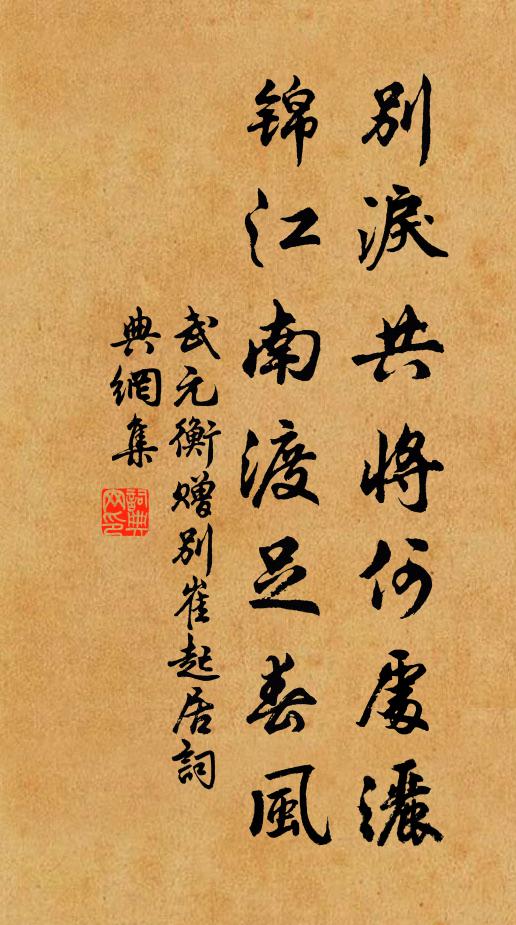 別淚共將何處灑
錦江南渡足春風
武元衡贈別崔起居詞
典網集
詞典網印